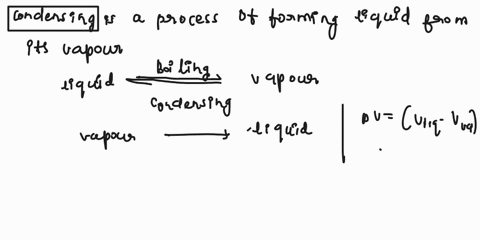 Condensing is a process of forming liquid from
its vapour
liquid Boiling vapour
Condensing
vapour → liquid
ΔV = (Vliq - Vvap)